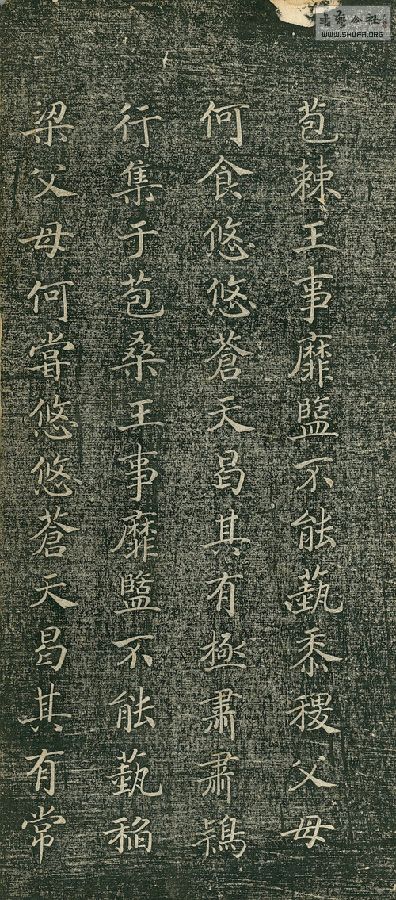 苞棘王事靡盬不能蓺黍稷父母
何食悠悠蒼天曷其有極肅肅鴇
行集于苞桑王事靡盬不能蓺稻
梁父母何嘗悠悠蒼天曷其有常
書法公社
WWW.SHUFA.ORG